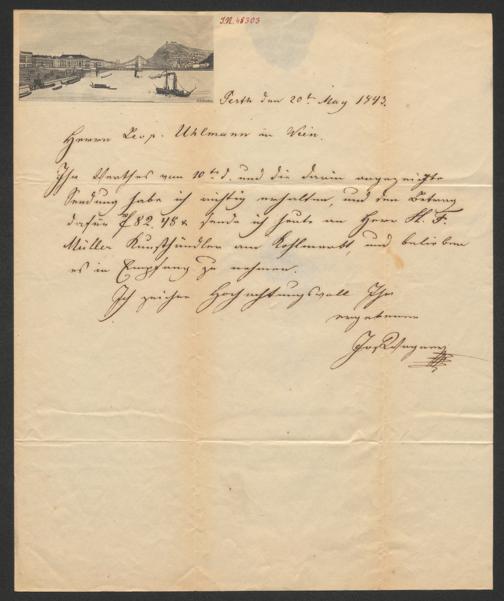 I.N. 48303
Pesth den 20t. May 1843.
Herrn Leop. Uhlmann in Wien.
Ihr Werthes vom 10ten d. und die darin angezeichte
Sendung habe ich richtig erhalten, und den Betrag
dafür f 82.48 x sende ich heute an Herrn H. F.
Müller Kunsthändler am Kohlmarkt, und belieben
es in Empfang zu nehmen.
Ich zeichne Hochachtungsvoll Ihr
ergebener
Jos Wagner